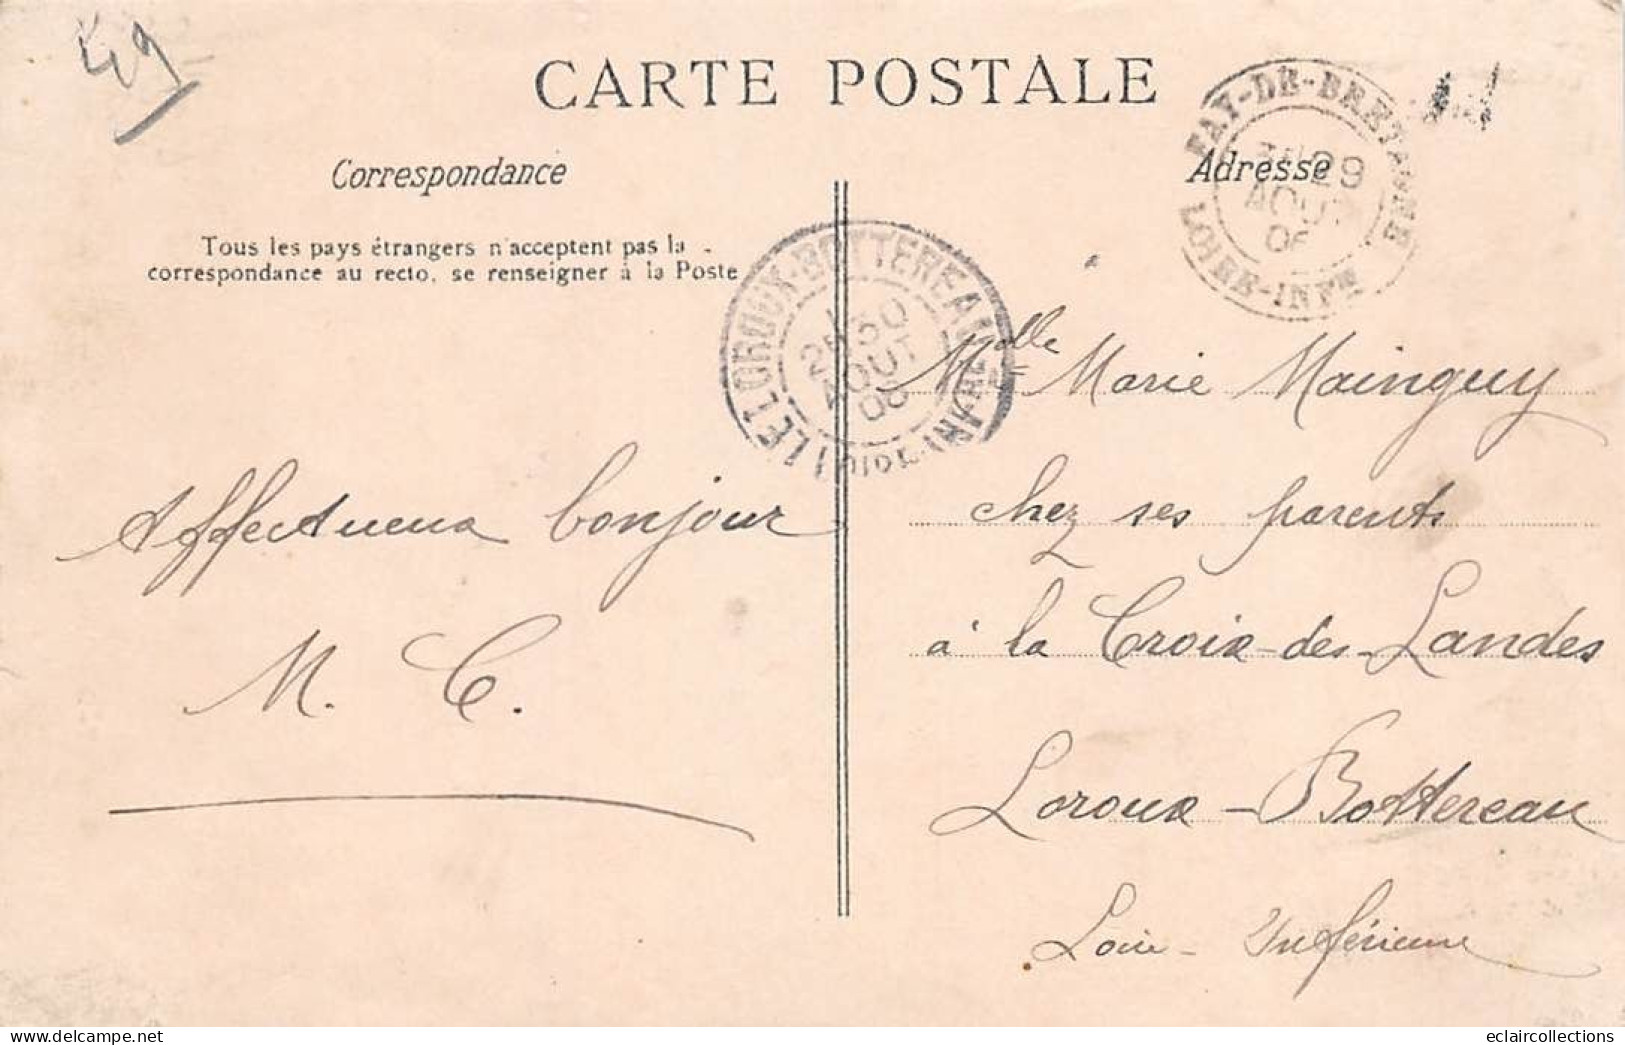 49
CARTE POSTALE
Correspondance
Adresse
Tous les pays étrangers n'acceptent pas la
correspondance au recto, se renseigner à la Poste
FAY-DE-BRETAGNE
29
AOUT
06
LOIRE-INFRE
LE LOROUX-BOTTEREAU
30
AOUT
06
Affectueux bonjour
M. C.
Melle Marie Mainguy
chez ses parents
à la Croix-des-Landes
Loroux-Bottereau
Loire-Inférieure
www.delcampe.net
eclaircollections